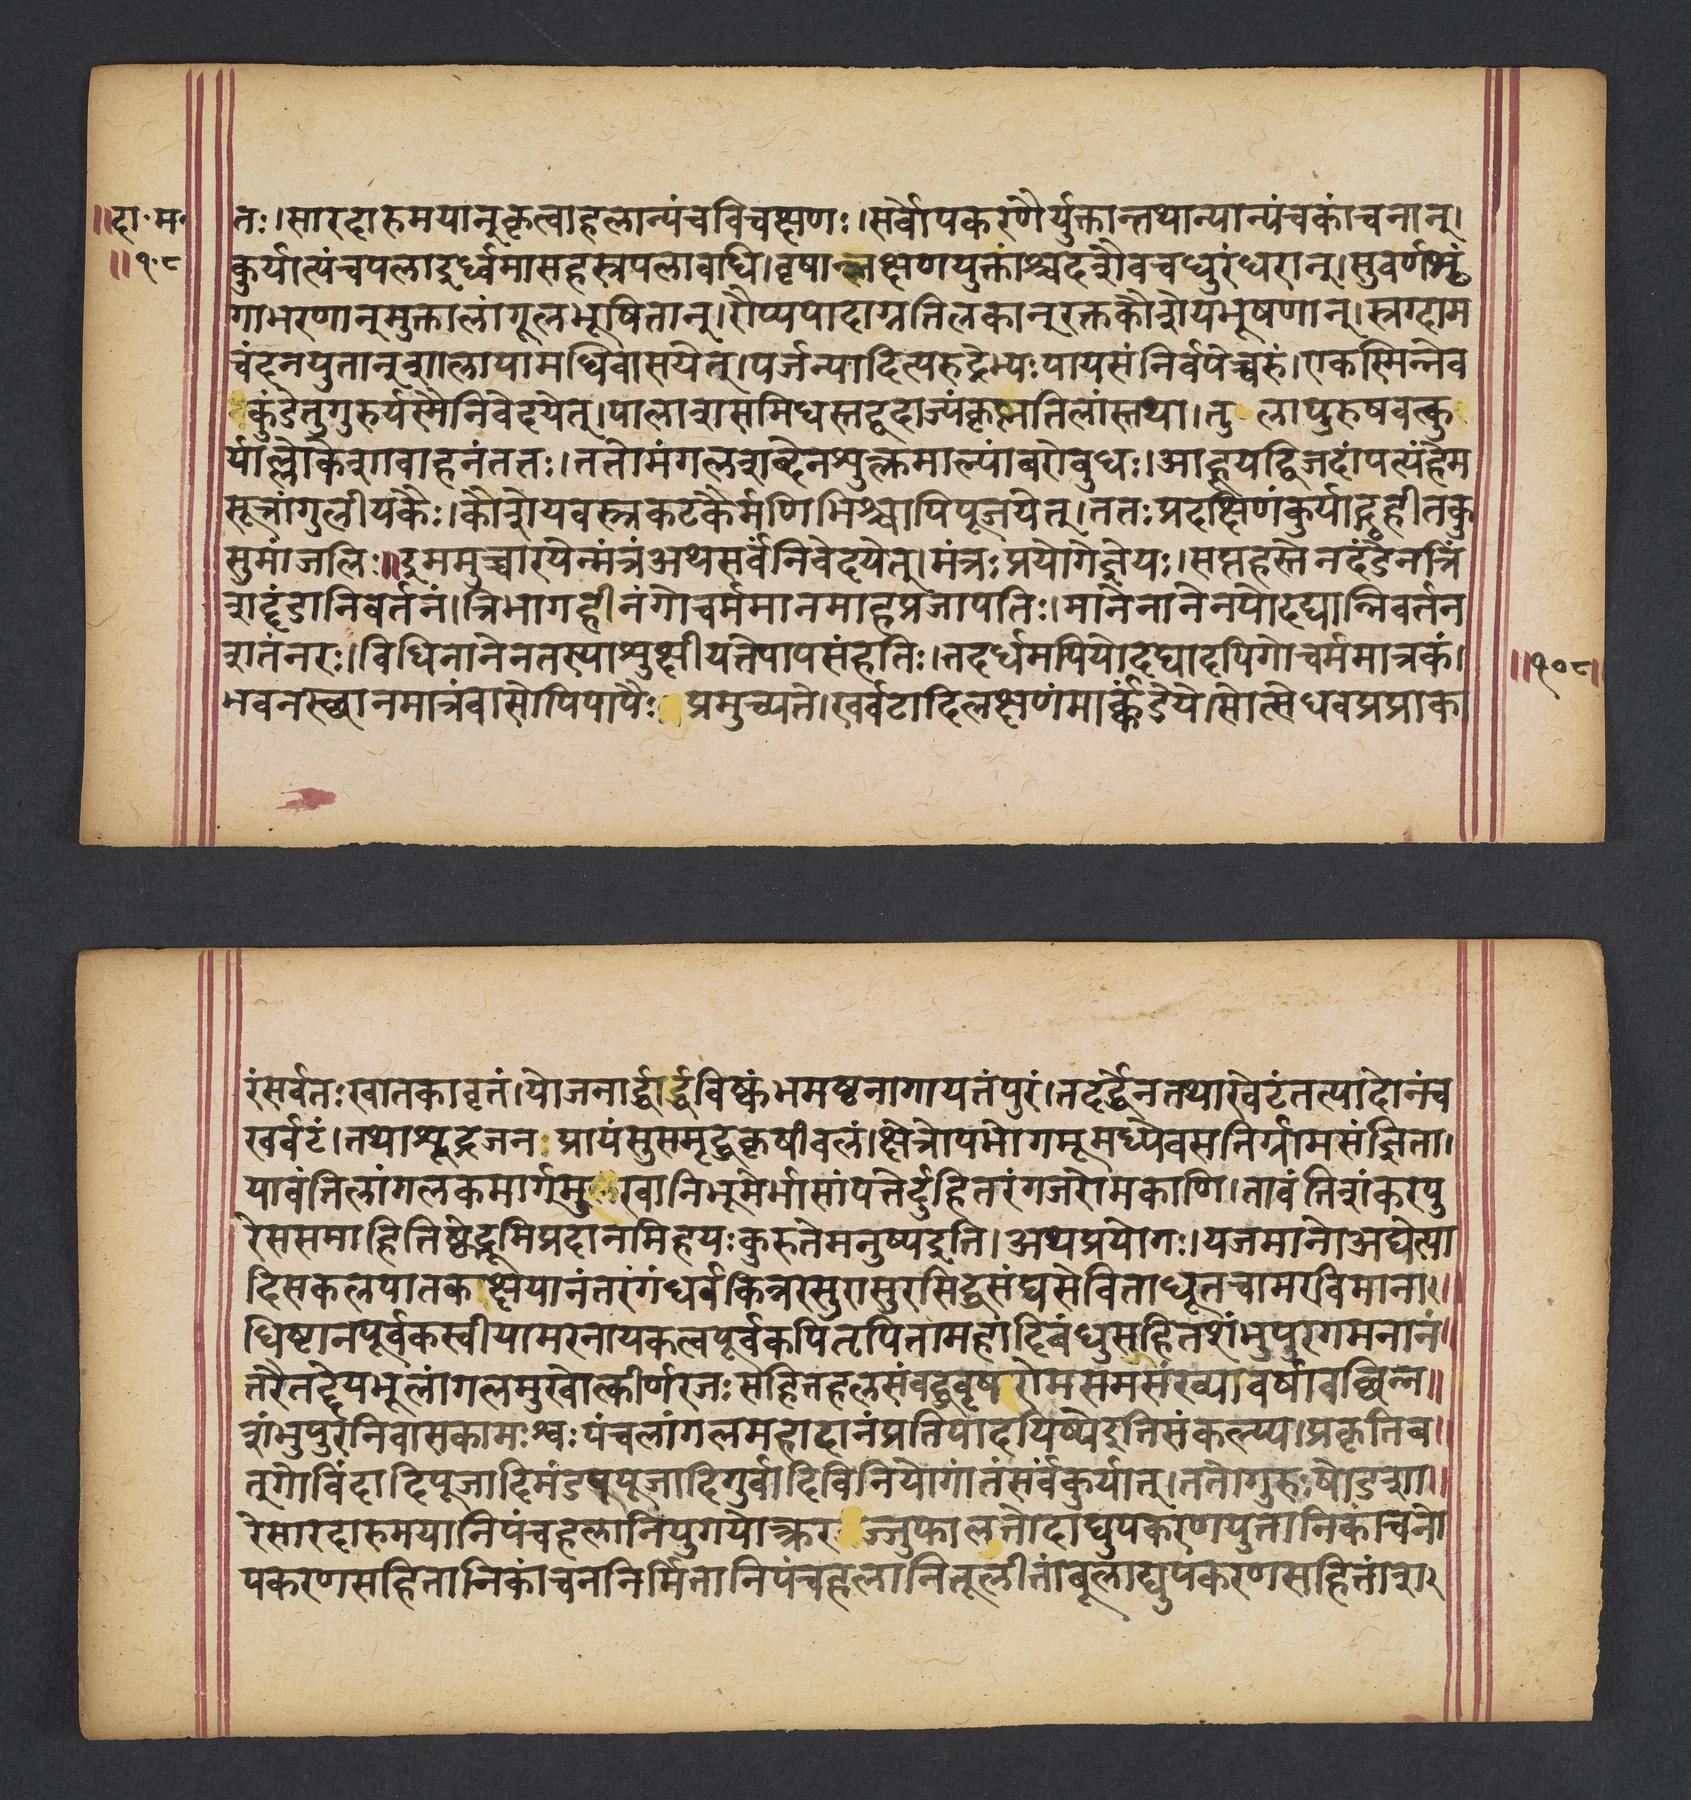 ॥दा॰म॰
॥१॰८
तः।सारदारुमयान्कृत्वाहलान्पंचविचक्षणः।सर्वोपकरणैर्युक्तान्तथान्यान्पंचकांचनान्।
कुर्यात्पंचपलादूर्ध्वमासहस्रपलावधि।वृषान्लक्षणयुक्तांश्चदशैवचधुरंधरान्।सुवर्णशृं
गाभरणान्मुक्तालांगूलभूषितान्।रौप्यपादाग्रतिलकान्रक्तकौशेयभूषणान्।स्रग्दाम
चंदनयुतान्शालायामधिवासयेत्।पर्जन्यादित्यरुद्रेभ्यःपायसंनिर्वपेच्चरुं।एकस्मिन्नेव
कुंडेतुगुरुर्यस्मैनिवेदयेत्।पालाशसमिधस्तद्वदाज्यंकृष्णतिलांस्तथा।तुलापुरुषवत्कु
र्याल्लोकेशावाहनंततः।ततोमंगलशब्देनशुक्लमाल्यांबरोबुधः।आहूयद्विजदांपत्यंहेम
सूत्रांगुलीयकैः।कौशेयवस्त्रकटकैर्मणिभिश्चापिपूजयेत्।ततःप्रदक्षिणंकुर्याद्गृहीतकु
सुमांजलिः॥इममुच्चारयेन्मंत्रंअथसर्वंनिवेदयेत्।मंत्रःप्रयोगेज्ञेयः।सप्तहस्तेनदंडेनत्रिं
शद्दंडानिवर्तनं।त्रिभागहीनंगोचर्ममानमाहप्रजापतिः।मानेनानेनयोदद्यान्निवर्तन
शतंनरः।विधिनानेनतस्याशुक्षीयतेपापसंहतिः।तदर्धमपियोदद्यादपिगोचर्ममात्रकं।
॥१०८॥
भवनस्थानमात्रंवासोपिपापैःप्रमुच्यते।खर्वटादिलक्षणंमार्कंडेये।सोत्सेधवप्रप्राका
रंसर्वतःखातकावृतं।योजनार्द्धार्द्धविष्कंभमष्टनागायतंपुरं।तदर्द्धेनतथाखेटंतत्पादोनंच
खर्वटं।तथाशूद्रजनप्रायंसुसमृद्धकृषीवलं।क्षेत्रोपभोगभूमध्येवसतिर्ग्रामसंज्ञिता।
यावंतिलांगलकमार्गमुखानिभूमेर्भासांपतेर्दुहितरंगजरोमकाणि।तावंतिशंकरपु
रेससमाहितिष्ठेद्भूमिप्रदानमिहयःकुरुतेमनुष्यइति।अथप्रयोगः।यजमानोअद्येत्या
दिसकलपातकक्षयानंतरंगंधर्वकिन्नरसुरासुरसिद्धसंघसेविताधूतचामरविमाना॥
धिष्टानपूर्वकस्वीयामरनायकत्वपूर्वकपितृपितामहादिबंधुसहितशंभुपुरगमनानं॥
तरैतद्देयभूलांगलमुखोत्कीर्णरजःसहितहलसंबद्धवृषरोमसमसंख्यावर्षावछिन्न॥
शंभुपुरनिवासकामःश्वःपंचलांगलमहादानंप्रतिपादयिष्येइतिसंकल्प्य।प्रकृतिव॥
त्गोविंदादिपूजादिमंडपपूजादिगुर्वादिविनियोगांतंसर्वंकुर्यात्।ततोगुरुःषोडशा॥
रेसारदारुमयानिपंचहलानियुगयोक्त्ररज्जुफालतोदाद्युपकरणयुतानिकांचनो
पकरणसहितानिकांचननिर्मितानिपंचहलानितूलीतांबूलाद्युपकरणसहितांशा